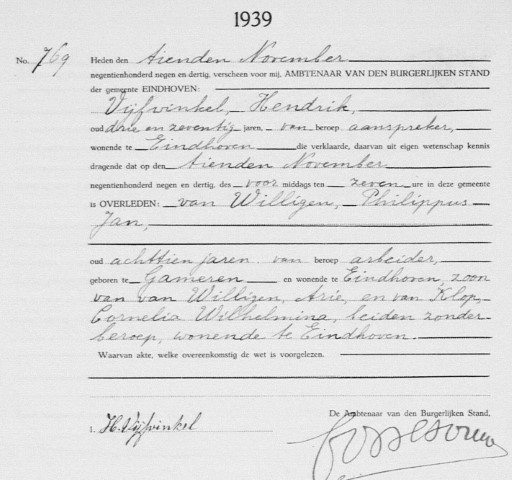 1939
No. 769 Heden den tienden November
negentienhonderd negen en dertig, verscheen voor mij, AMBTENAAR VAN DEN BURGERLIJKEN STAND
der gemeente EINDHOVEN:
Vijfvinkel, Hendrik,
oud drie en zeventig jaren, van beroep aanspreker,
wonende te Eindhoven die verklaarde, daarvan uit eigen wetenschap kennis
dragende dat op den tienden November
negentienhonderd negen en dertig, des voor middags ten zeven ure in deze gemeente
is OVERLEDEN: van Willigen, Philippus
Jan,
oud achttien jaren van beroep arbeider,
geboren te Gameren en wonende te Eindhoven, zoon
van van Willigen, Arie, en van Klop,
Cornelia Wilhelmina, beiden zonder
beroep, wonende te Eindhoven.
Waarvan akte, welke overeenkomstig de wet is voorgelezen.
De Ambtenaar van den Burgerlijken Stand,
1. H. Vijfvinkel